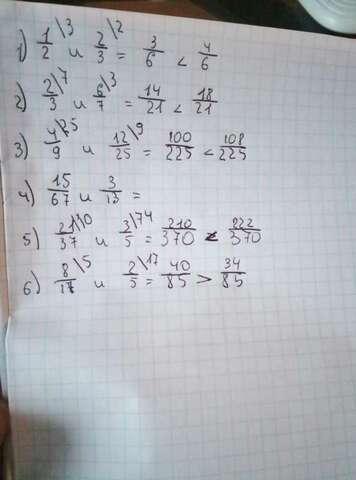 1) 1/2 \3 и 2/3 \2 = 3/6 < 4/6
2) 2/3 \7 и 6/7 \3 = 14/21 < 18/21
3) 4/9 \25 и 12/25 \9 = 100/225 < 108/225
4) 15/67 и 3/13 =
5) 21/37 \10 и 3/5 \74 = 210/370 < 222/370
6) 8/17 \5 и 2/5 \17 = 40/85 > 34/85